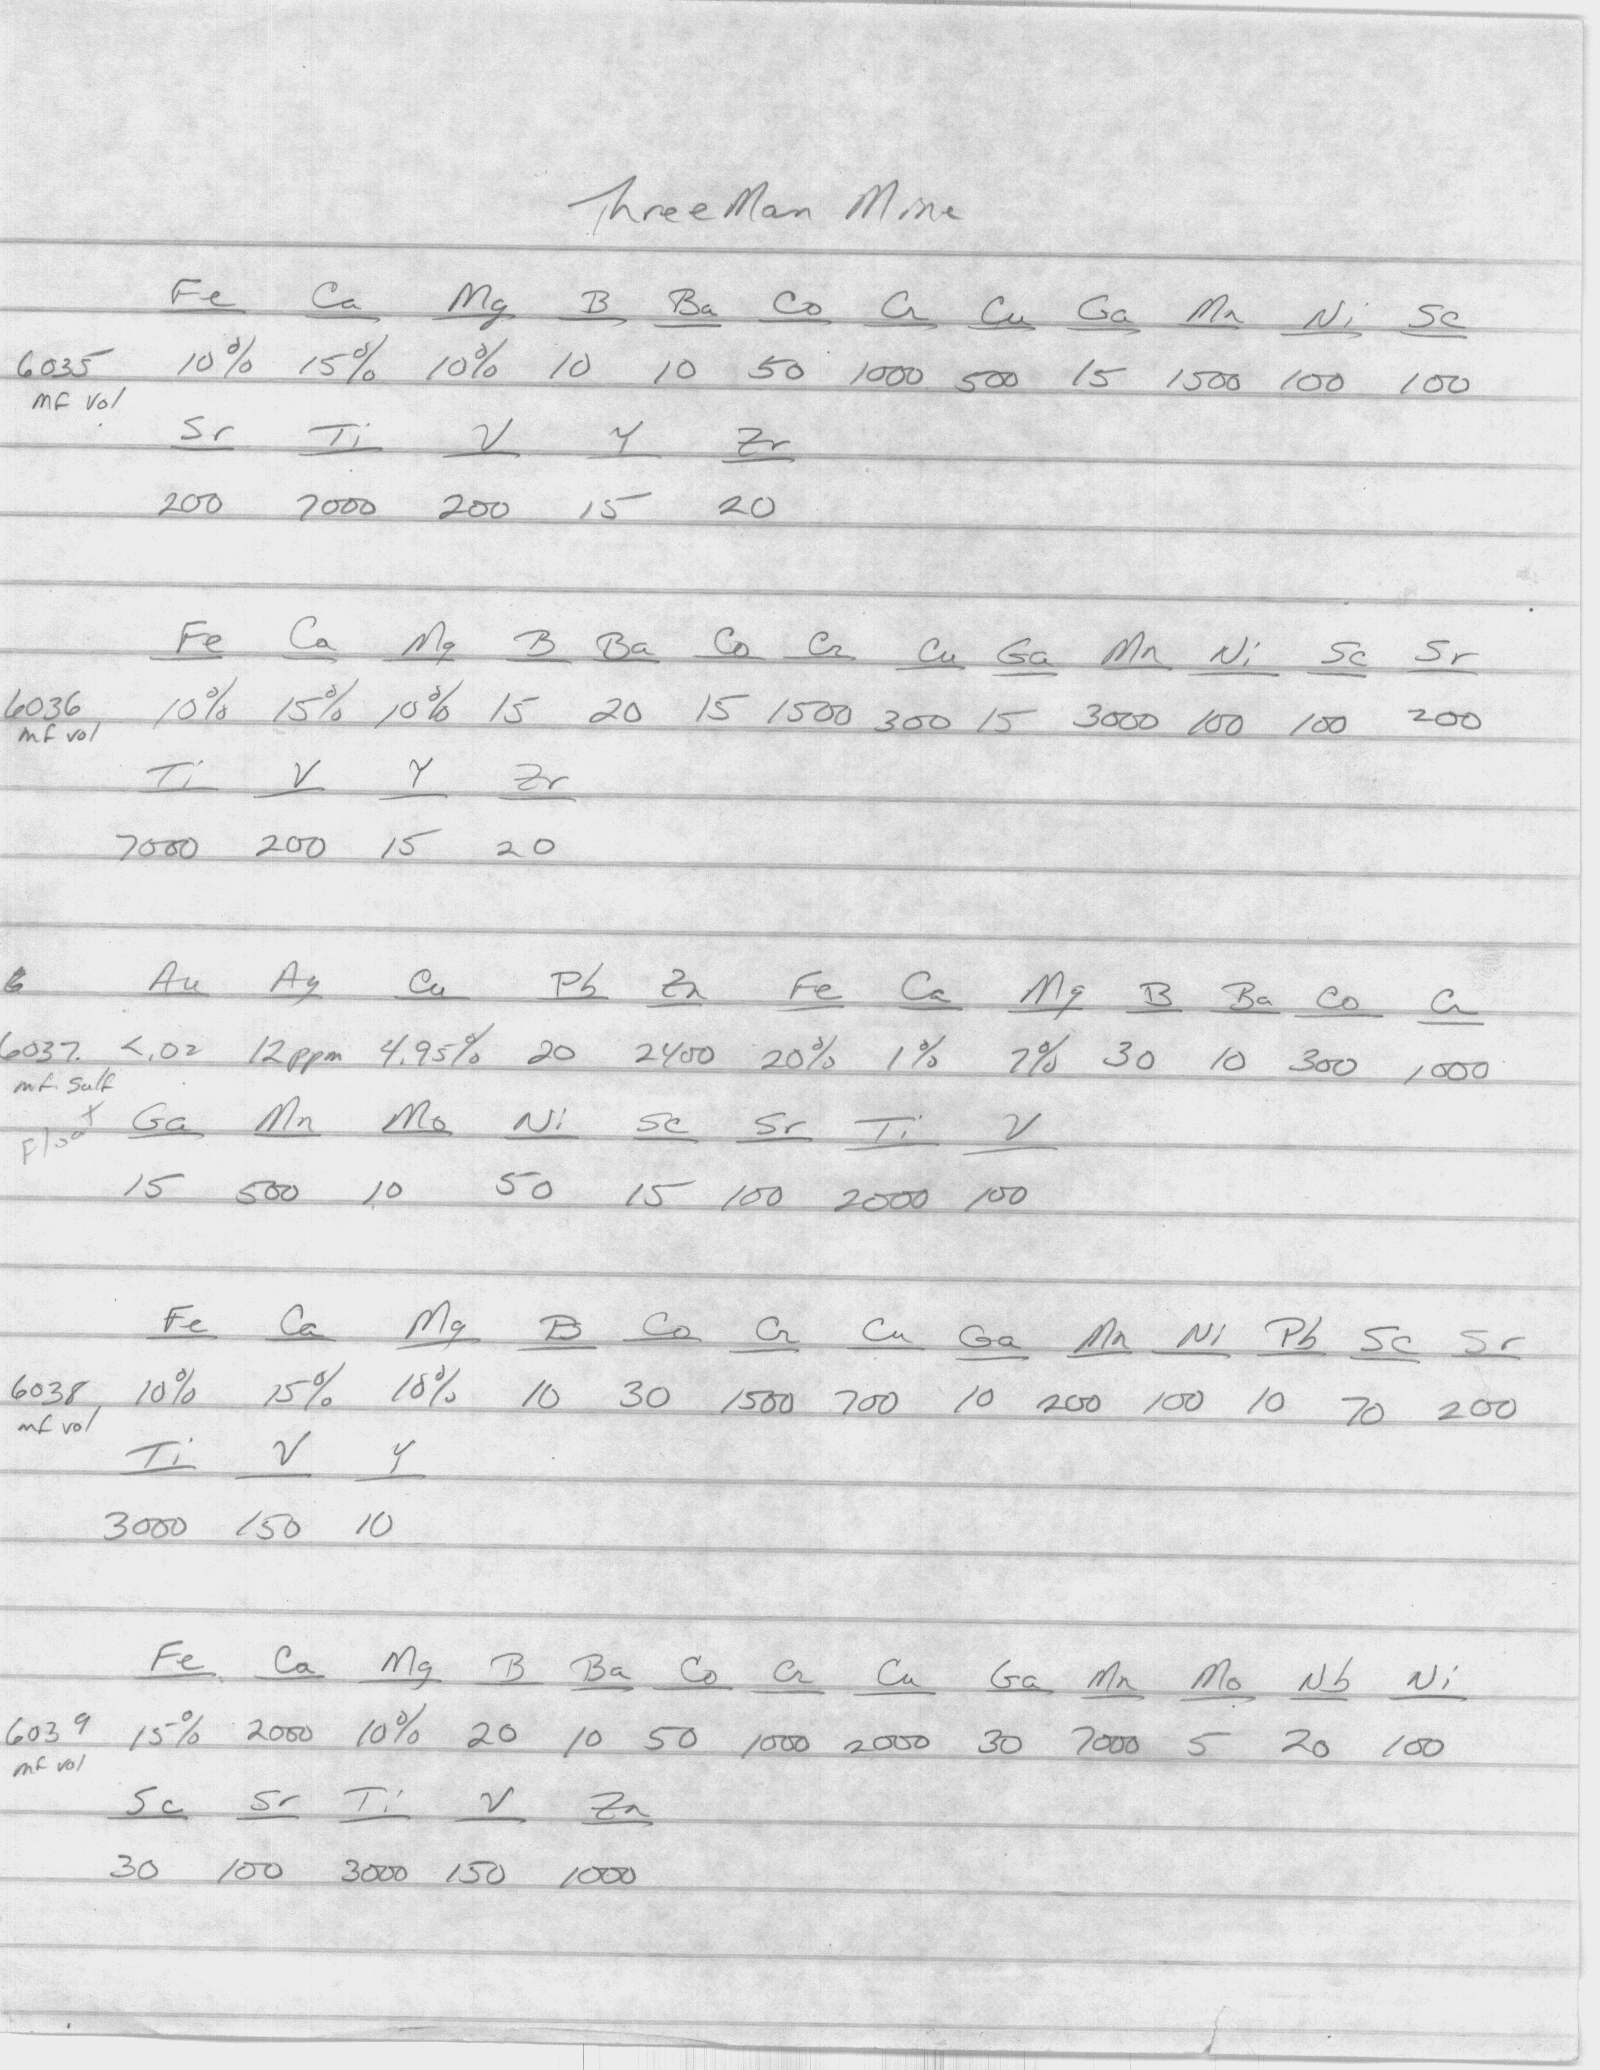 Three Man Mine
Fe Ca Mg B Ba Co Cr Cu Ga Mn Ni Sc
6035 10% 15% 10% 10 10 50 1000 500 15 1500 100 100
mf vol
Sr Ti V Y Zr
200 7000 200 15 20
Fe Ca Mg B Ba Co Cr Cu Ga Mn Ni Sc Sr
6036 10% 15% 10% 15 20 15 1500 300 15 3000 100 100 200
mf vol
Ti V Y Zr
7000 200 15 20
6 Au Ag Cu Pb Zn Fe Ca Mg B Ba Co Cr
6037 <.02 12ppm 4.95% 20 2400 20% 1% 7% 30 10 300 1000
mf. sulf
Float Ga Mn Mo Ni Sc Sr Ti V
15 500 10 50 15 100 2000 100
Fe Ca Mg B Co Cr Cu Ga Mn Ni Pb Sc Sr
6038 10% 15% 10% 10 30 1500 700 10 200 100 10 70 200
mf vol
Ti V Y
3000 150 10
Fe Ca Mg B Ba Co Cr Cu Ga Mn Mo Nb Ni
6039 15% 2000 10% 20 10 50 1000 2000 30 7000 5 20 100
mf vol
Sc Sr Ti V Zn
30 100 3000 150 1000